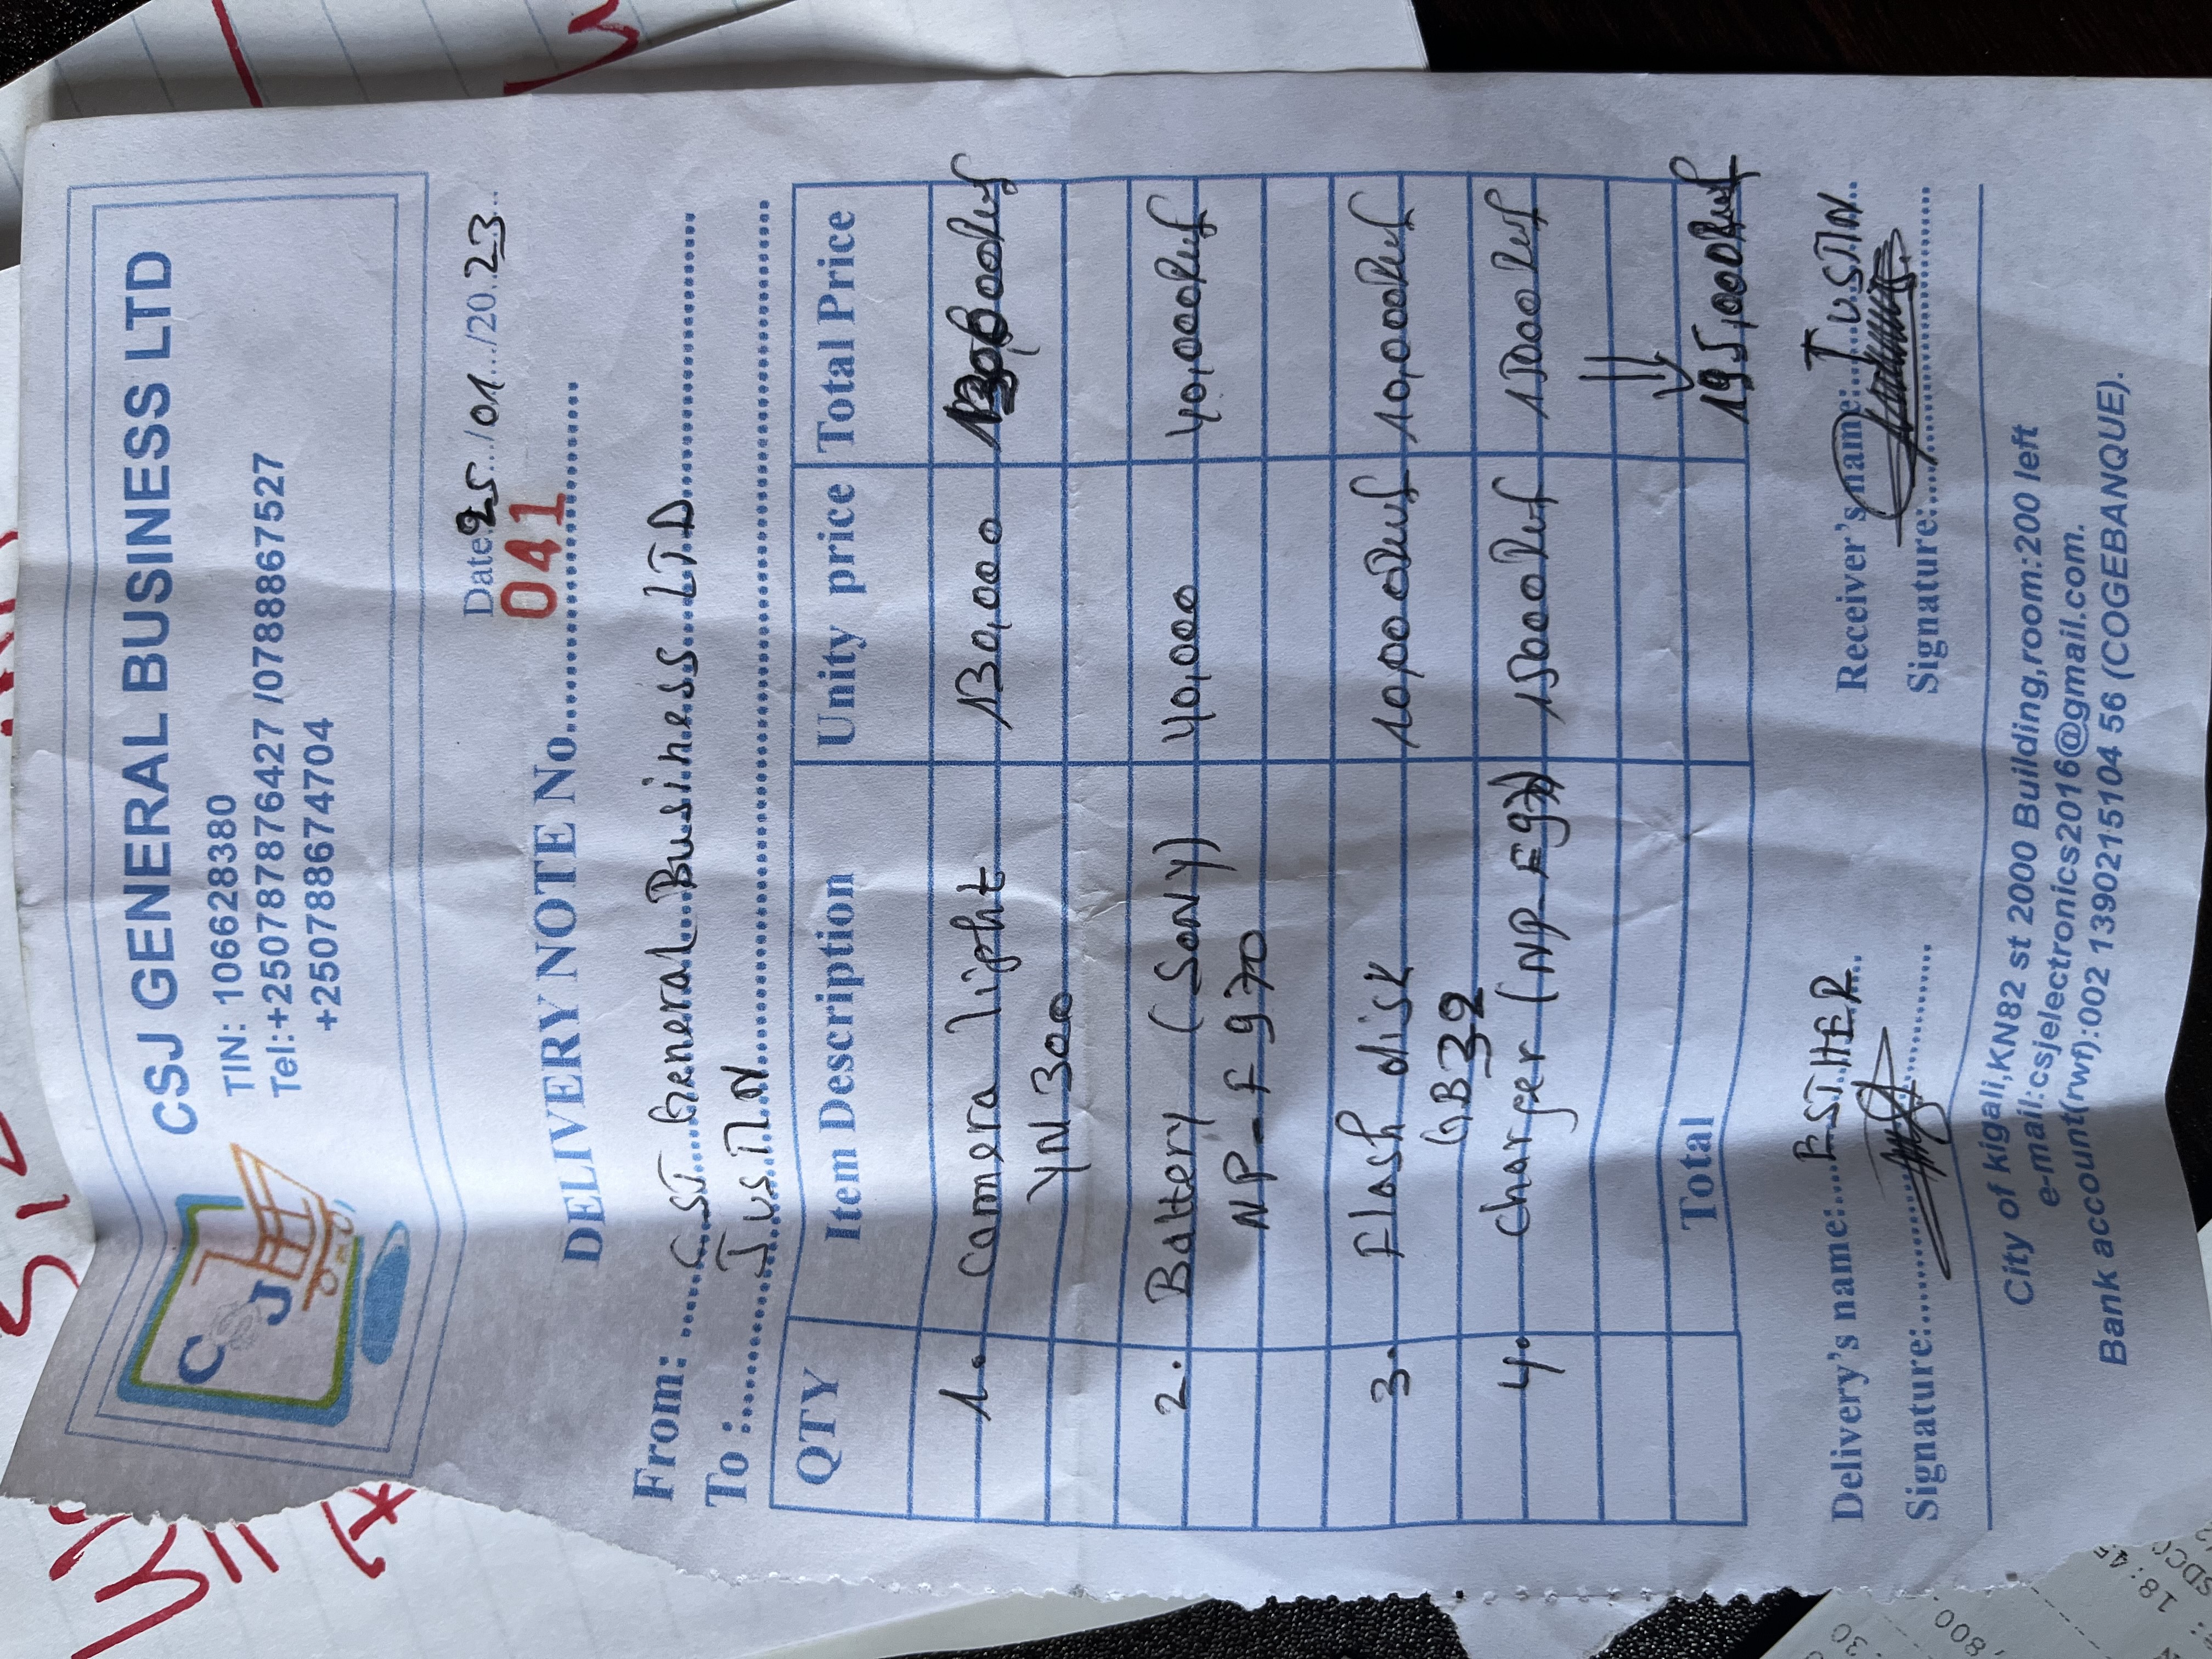 CSJ GENERAL BUSINESS LTD
TIN: 106628380
Tel:+250787876427 /0788867527
+250788674704
C J
Date 25/01/2023
041
DELIVERY NOTE No
From: CSJ General Business LTD
To : JUSTIN
QTY Item Description Unity price Total Price
1. Camera light 130,000 130,000Rwf
YN 300
2. Battery (SONY) 40,000 40,000Rwf
NP-F970
3. Flash disk 10,000Rwf 10,000Rwf
GB32
4. Charger (NP-F970) 15000Rwf 15000Rwf
Total 195,000Rwf
Delivery's name: ESTHER Receiver's name: JUSTIN
Signature: Signature:
City of kigali,KN82 st 2000 Building,room:200 left
e-mail:csjelectronics2016@gmail.com.
Bank account(rwf):002 1390215104 56 (COGEBANQUE).